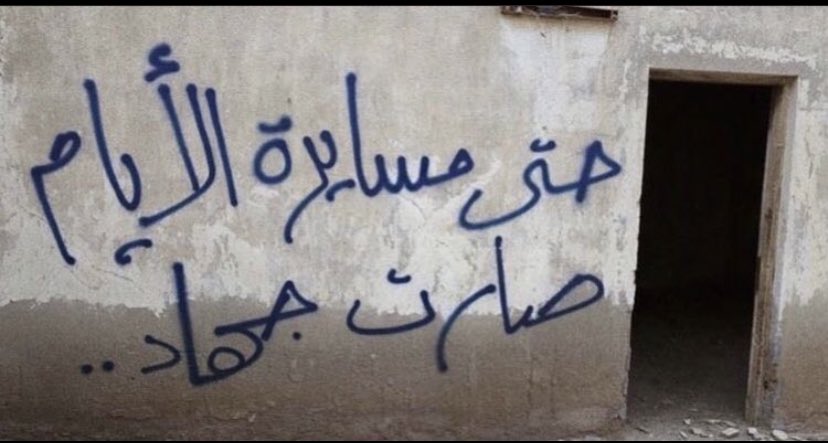 حتى مسايرة الأيام
صارت جهاد..